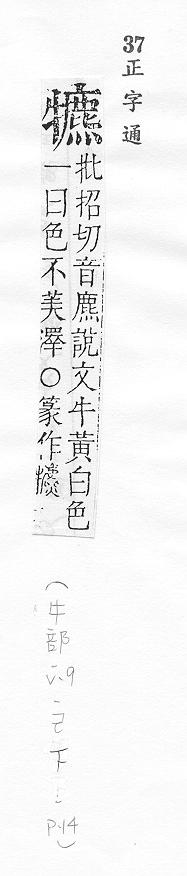 37
正字通
犥
批招切音麃說文牛黃白色
一曰色不美澤○篆作
(牛部 下 P.14)